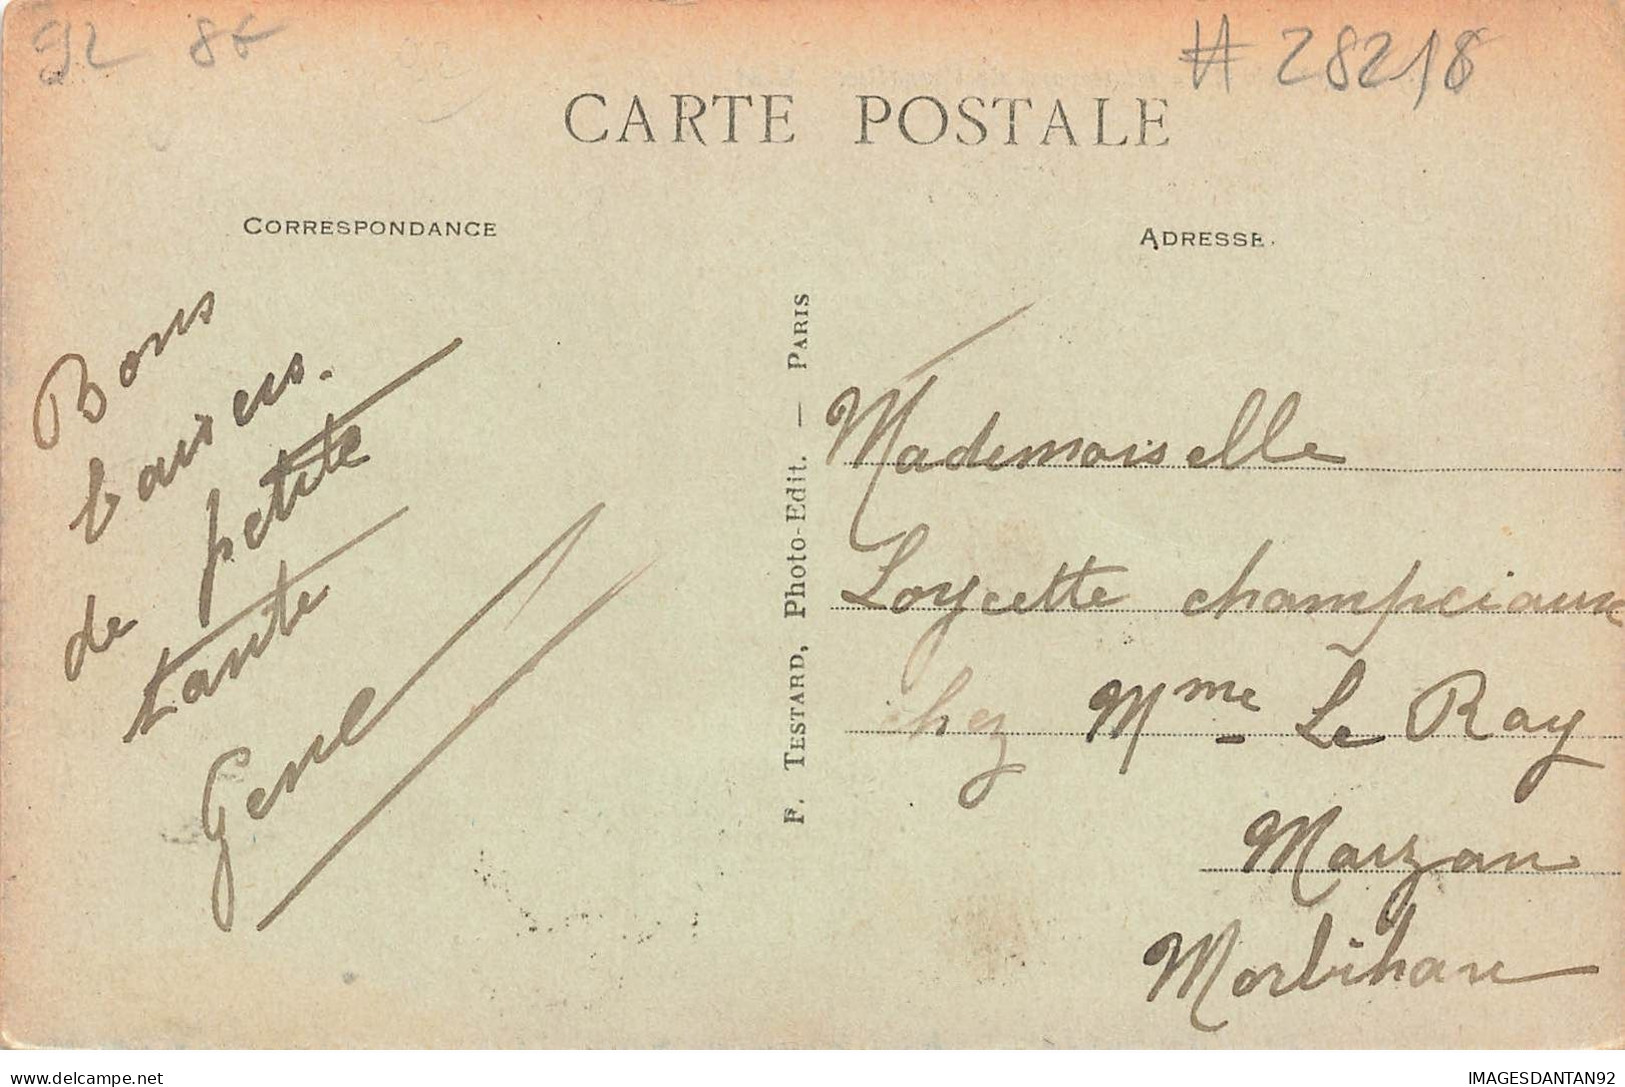 92 86
# 28218
CARTE POSTALE
CORRESPONDANCE
ADRESSE.
Bons
baisers.
de petite
tante
F. TESTARD, Photo-Edit. — PARIS
Mademoiselle
chez Mme Le Ray
Marzan
Morbihan
delcampe.net
IMAGESDANTAN92